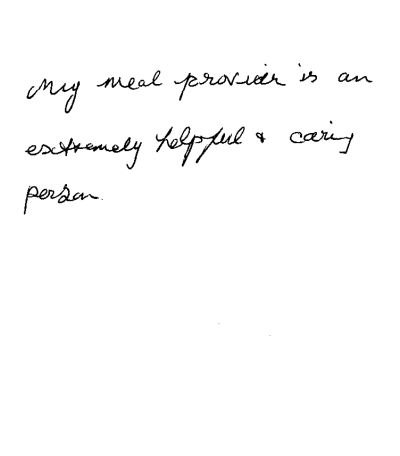 My meal provider is an
extremely helpful & caring
person.